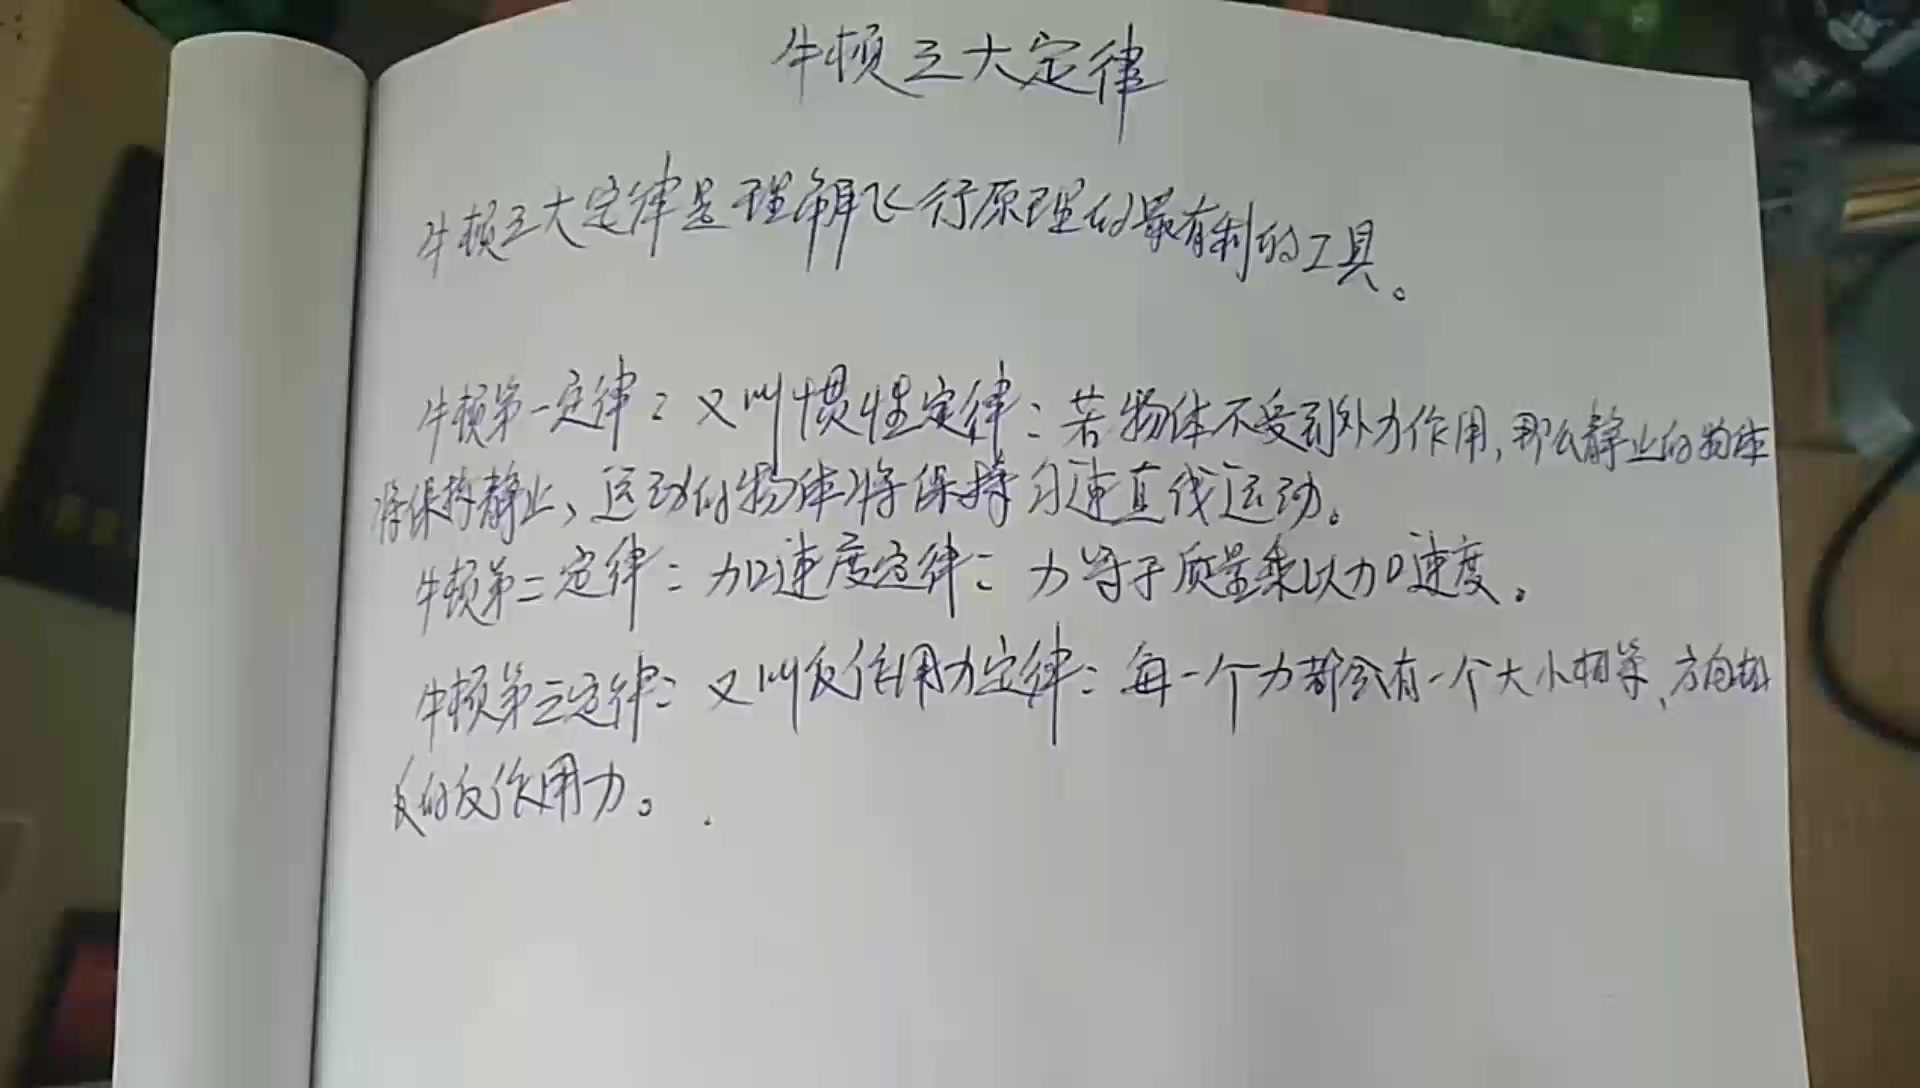 牛顿三大定律
牛顿三大定律是理解飞行原理的最有利的工具。
牛顿第一定律：又叫惯性定律：若物体不受到外力作用，那么静止的物体
将保持静止、运动的物体将保持匀速直线运动。
牛顿第二定律：加速度定律：力等于质量乘以加速度。
牛顿第三定律：又叫反作用力定律：每一个力都会有一个大小相等、方向相
反的反作用力。